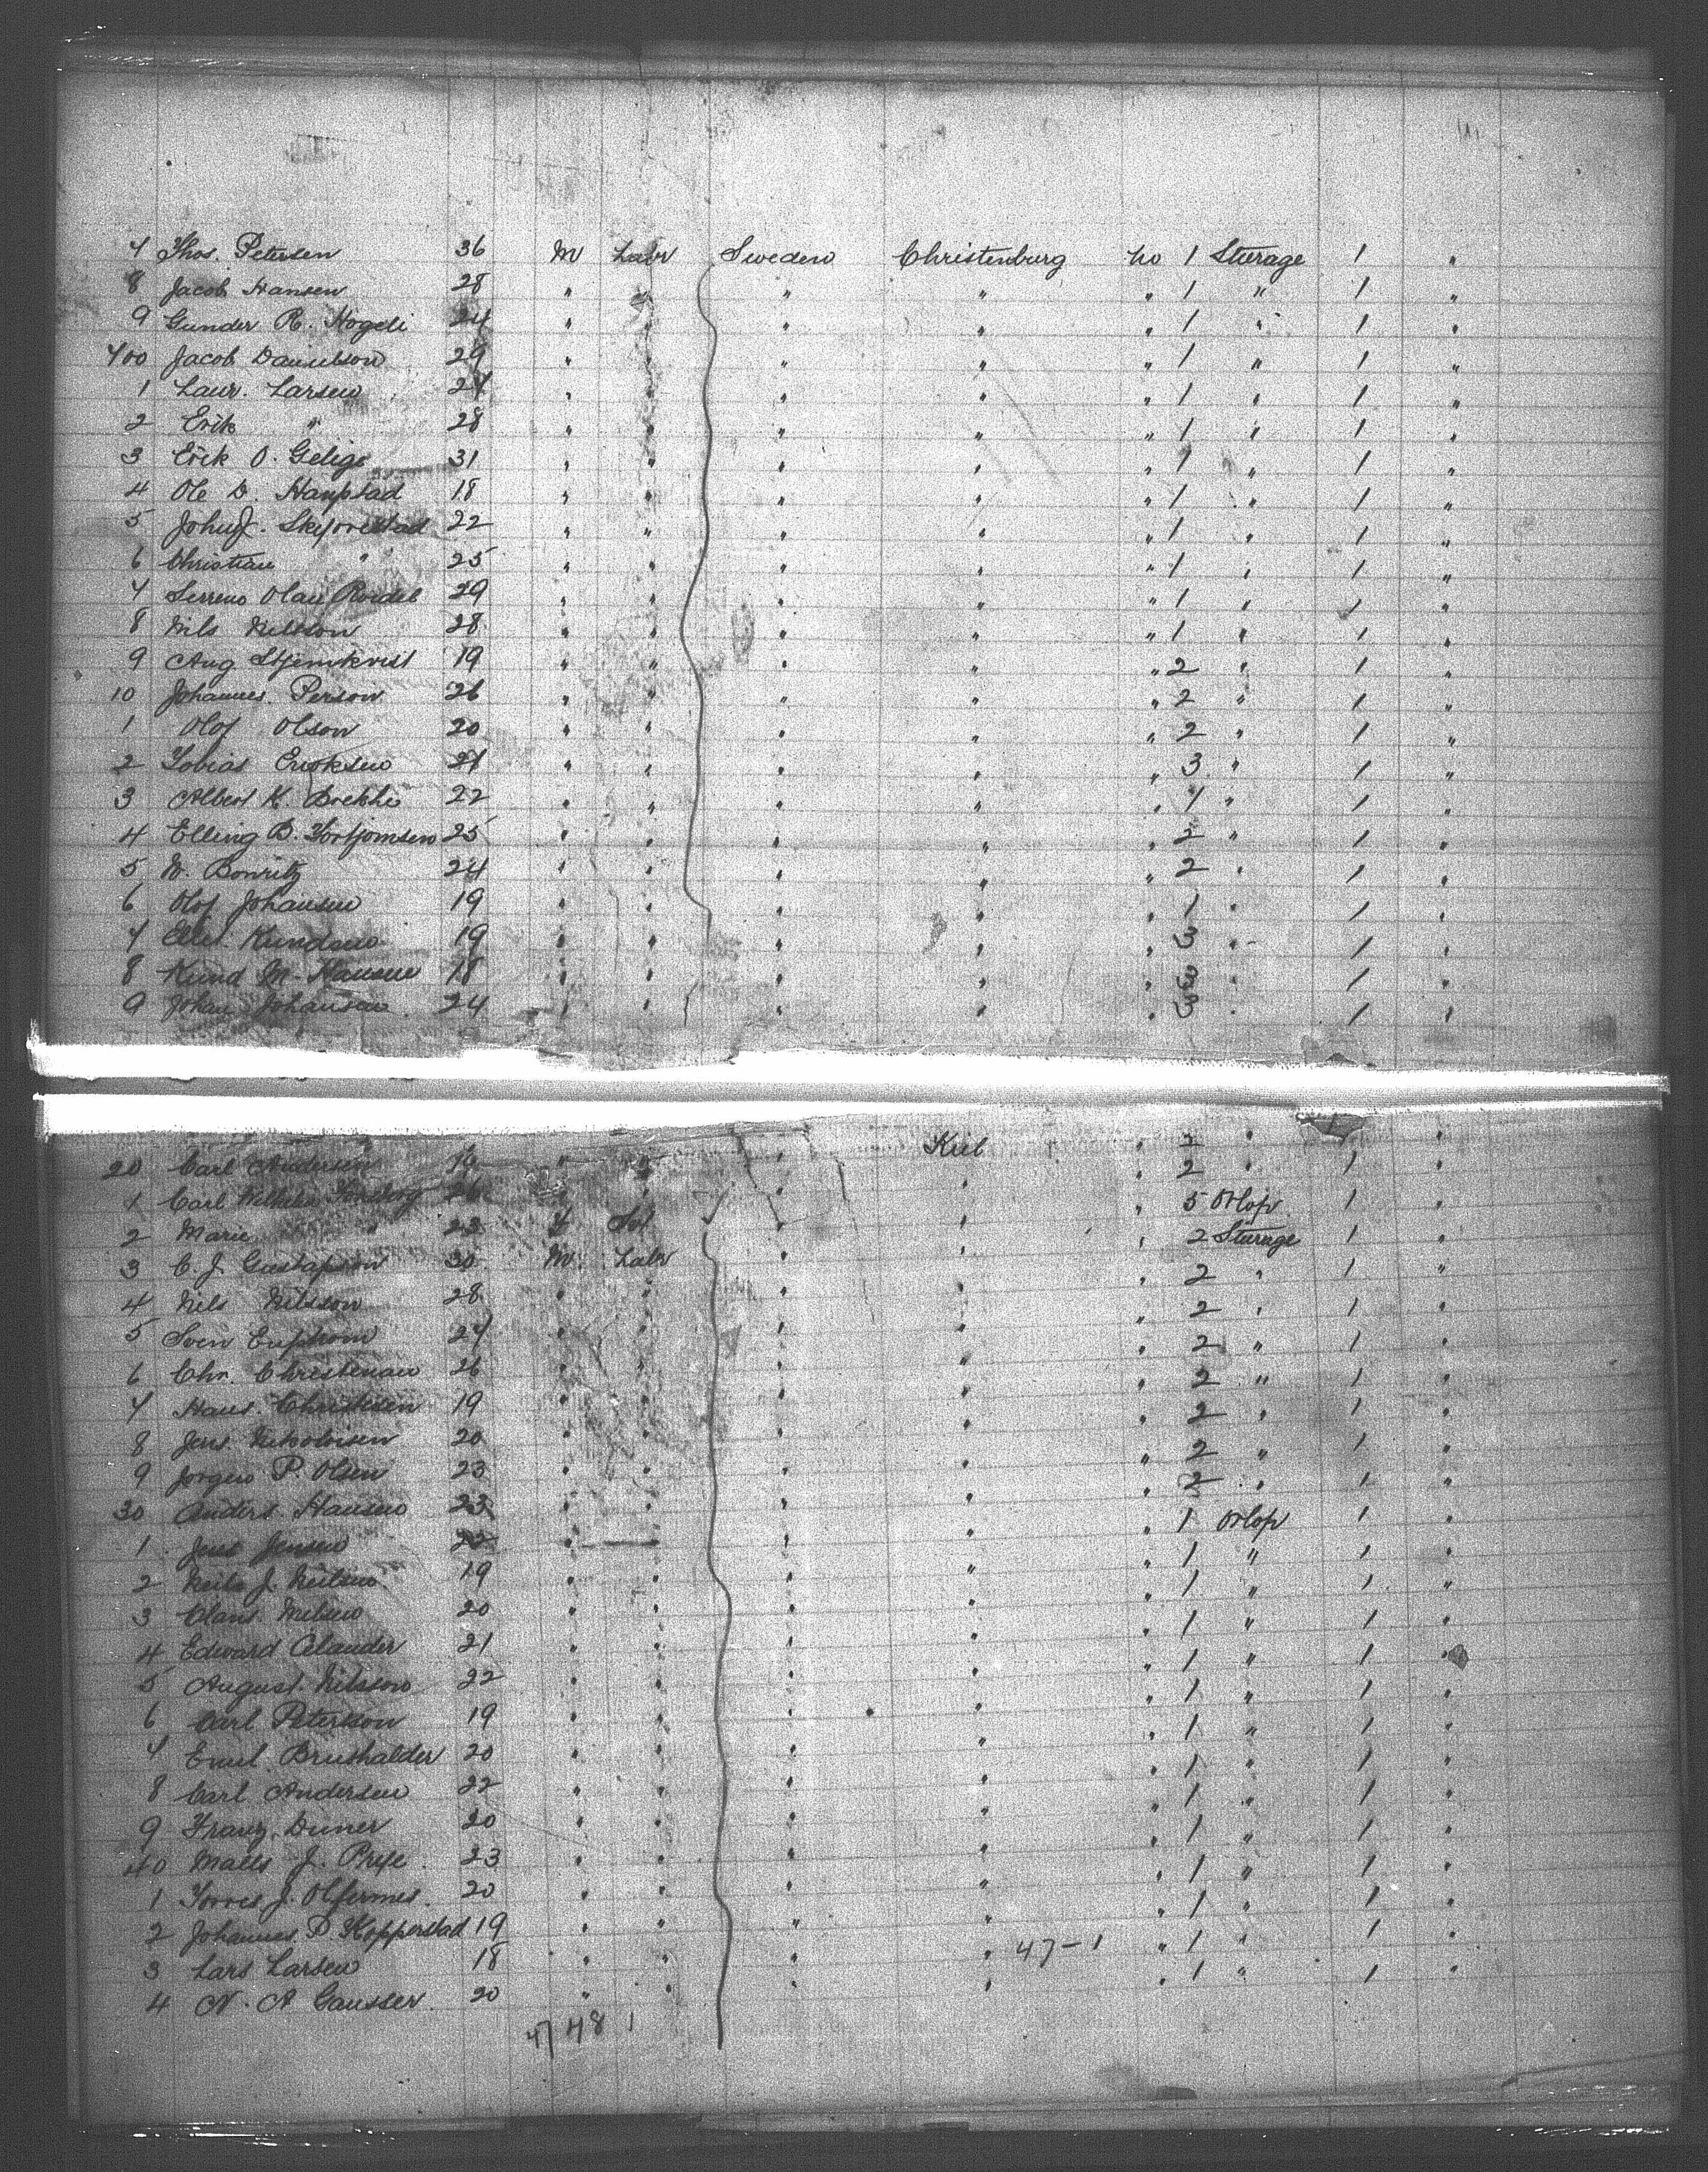 7 Thos. Petersen 36 M Labr Sweden Christenburg no 1 Sturage 1 "
8 Jacob Hansen 28 " " " " " 1 " 1 "
9 Gunder R. Hogeli 24 " " " " " 1 " 1 "
400 Jacob Danielson 29 " " " " " 1 " 1 "
1 Laur. Larsen 27 " " " " " 1 " 1 "
2 Erik " 28 " " " " " 1 " 1 "
3 Erik O. Gelige 31 " " " " " 1 " 1 "
4 Ole D. Haupstad 18 " " " " " 1 " 1 "
5 John J. Skjorestad 22 " " " " " 1 " 1 "
6 Christian " 25 " " " " " 1 " 1 "
7 Serreno Olau 29 " " " " " 1 " 1 "
8 Nils Nelsson 28 " " " " " 1 " 1 "
9 Aug Stjernkvist 19 " " " " " 2 " 1 "
10 Johannes. Person 26 " " " " " 2 " 1 "
1 Olof Olson 20 " " " " " 2 " 1 "
2 Tobias 21 " " " " " 3 " 1 "
3 Albert K. Brekke 22 " " " " " 1 " 1 "
4 Elling B. Tortjomsen 25 " " " " " 2 " 1 "
5 W. Bonritz 24 " " " " " 2 " 1 "
6 Olof Johansen 19 " " " " " 1 " 1 "
7 Kundsen 19 " " " " " 3 " 1 "
8 Kund M. Hansen 18 " " " " " 3 " 1 "
9 Johan Johansen 24 " " " " " 3 " 1 "
20 Carl Andersen 19 " " " Kiel " 2 " 1 "
1 Carl Wilhelm 26 " " " " " 2 " 1 "
2 Marie " 23 F " " " 5 Orlop 1 "
3 C. J. Gustafson 30 M Labr " " " 2 Sturage 1 "
4 Nels Nilsson 28 " " " " " 2 " 1 "
5 Sven 27 " " " " " 2 " 1 "
6 Chr. Christensen 26 " " " " " 2 " 1 "
7 Hans. Christesen 19 " " " " " 2 " 1 "
8 Jens 20 " " " " " 2 " 1 "
9 Jorgen P. Olsen 23 " " " " " 2 " 1 "
30 Anders. Hansen 23 " " " " " 2 " 1 "
1 Jens Jensen 22 " " " " " 1 Orlop 1 "
2 Neils J. Neilsen 19 " " " " " 1 " 1 "
3 Clans Nielsen 20 " " " " " 1 " 1 "
4 Edward Clauder 21 " " " " " 1 " 1 "
5 August. Nilsson 22 " " " " " 1 " 1 "
6 Carl Peterson 19 " " " " " 1 " 1 "
7 Emil. Brushalder 20 " " " " " 1 " 1 "
8 Carl Andersen 22 " " " " " 1 " 1 "
9 Franz. Duner 20 " " " " " 1 " 1 "
40 Malls J. 23 " " " " " 1 " 1 "
1 Torres J. Olfermes. 20 " " " " " 1 " 1 "
2 Johannes P Kopperstad 19 " " " " " 1 " 1 "
3 Lars Larsen 18 " " " " 47-1 " 1 " 1 "
4 N. A Gausser. 20 " " " " " 1 " 1 "
47 48 1